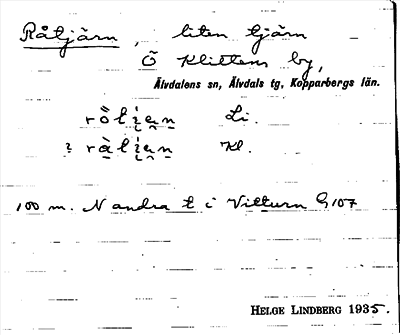 Råtjärn, liten tjärn
Ö Klittens by,
Älvdalens sn, Älvdals tg, Kopparbergs län.
rò̀lįa̯n̥ Li.
i ràlįa̯n̥ Kl.
100 m. N andra t i Vitturn G 107
HELGE LINDBERG 1935.